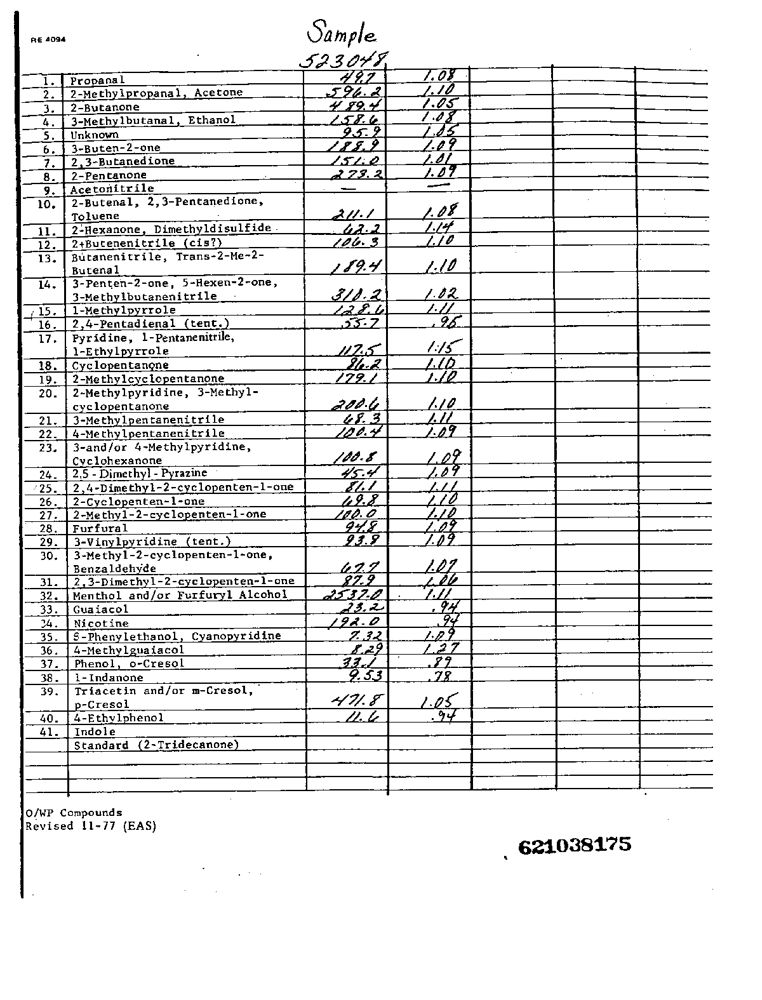 RE 4094
Sample
523048
1. Propanal 49.7 1.08
2. 2-Methylpropanal, Acetone 596.2 1.10
3. 2-Butanone 489.4 1.05
4. 3-Methylbutanal, Ethanol 158.6 1.08
5. Unknown 95.9 1.05
6. 3-Buten-2-one 188.9 1.09
7. 2,3-Butanedione 151.0 1.01
8. 2-Pentanone 273.2 1.09
9. Acetonitrile — —
10. 2-Butenal, 2,3-Pentanedione,
Toluene 211.1 1.08
11. 2-Hexanone, Dimethyldisulfide 62.2 1.14
12. 2-Butenenitrile (cis?) 106.3 1.10
13. Butanenitrile, Trans-2-Me-2-
Butenal 189.4 1.10
14. 3-Penten-2-one, 5-Hexen-2-one,
3-Methylbutanenitrile 310.2 1.02
15. 1-Methylpyrrole 128.6 1.11
16. 2,4-Pentadienal (tent.) 55.7 .96
17. Pyridine, 1-Pentanenitrile,
1-Ethylpyrrole 117.5 1.15
18. Cyclopentanone 86.2 1.10
19. 2-Methylcyclopentanone 179.1 1.10
20. 2-Methylpyridine, 3-Methyl-
cyclopentanone 200.6 1.10
21. 3-Methylpentanenitrile 68.3 1.11
22. 4-Methylpentanenitrile 100.4 1.09
23. 3-and/or 4-Methylpyridine,
Cyclohexanone 100.8 1.09
24. 2,5-Dimethyl-Pyrazine 45.4 1.09
25. 2,4-Dimethyl-2-cyclopenten-1-one 81.1 1.11
26. 2-Cyclopenten-1-one 69.8 1.10
27. 2-Methyl-2-cyclopenten-1-one 100.0 1.10
28. Furfural 94.8 1.09
29. 3-Vinylpyridine (tent.) 93.8 1.09
30. 3-Methyl-2-cyclopenten-1-one,
Benzaldehyde 67.7 1.07
31. 2,3-Dimethyl-2-cyclopenten-1-one 87.9 1.06
32. Menthol and/or Furfuryl Alcohol 2537.0 1.11
33. Guaiacol 23.2 .94
34. Nicotine 192.0 .94
35. B-Phenylethanol, Cyanopyridine 7.32 1.09
36. 4-Methylguaiacol 8.29 1.27
37. Phenol, o-Cresol 33.1 .89
38. 1-Indanone 9.53 .78
39. Triacetin and/or m-Cresol,
p-Cresol 471.8 1.05
40. 4-Ethylphenol 11.6 .94
41. Indole
Standard (2-Tridecanone)
O/WP Compounds
Revised 11-77 (EAS)
621038175